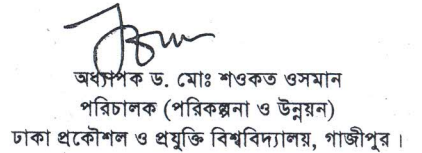 অধ্যাপক ড. মোঃ শওকত ওসমান
পরিচালক (পরিকল্পনা ও উন্নয়ন)
ঢাকা প্রকৌশল ও প্রযুক্তি বিশ্ববিদ্যালয়, গাজীপুর ।